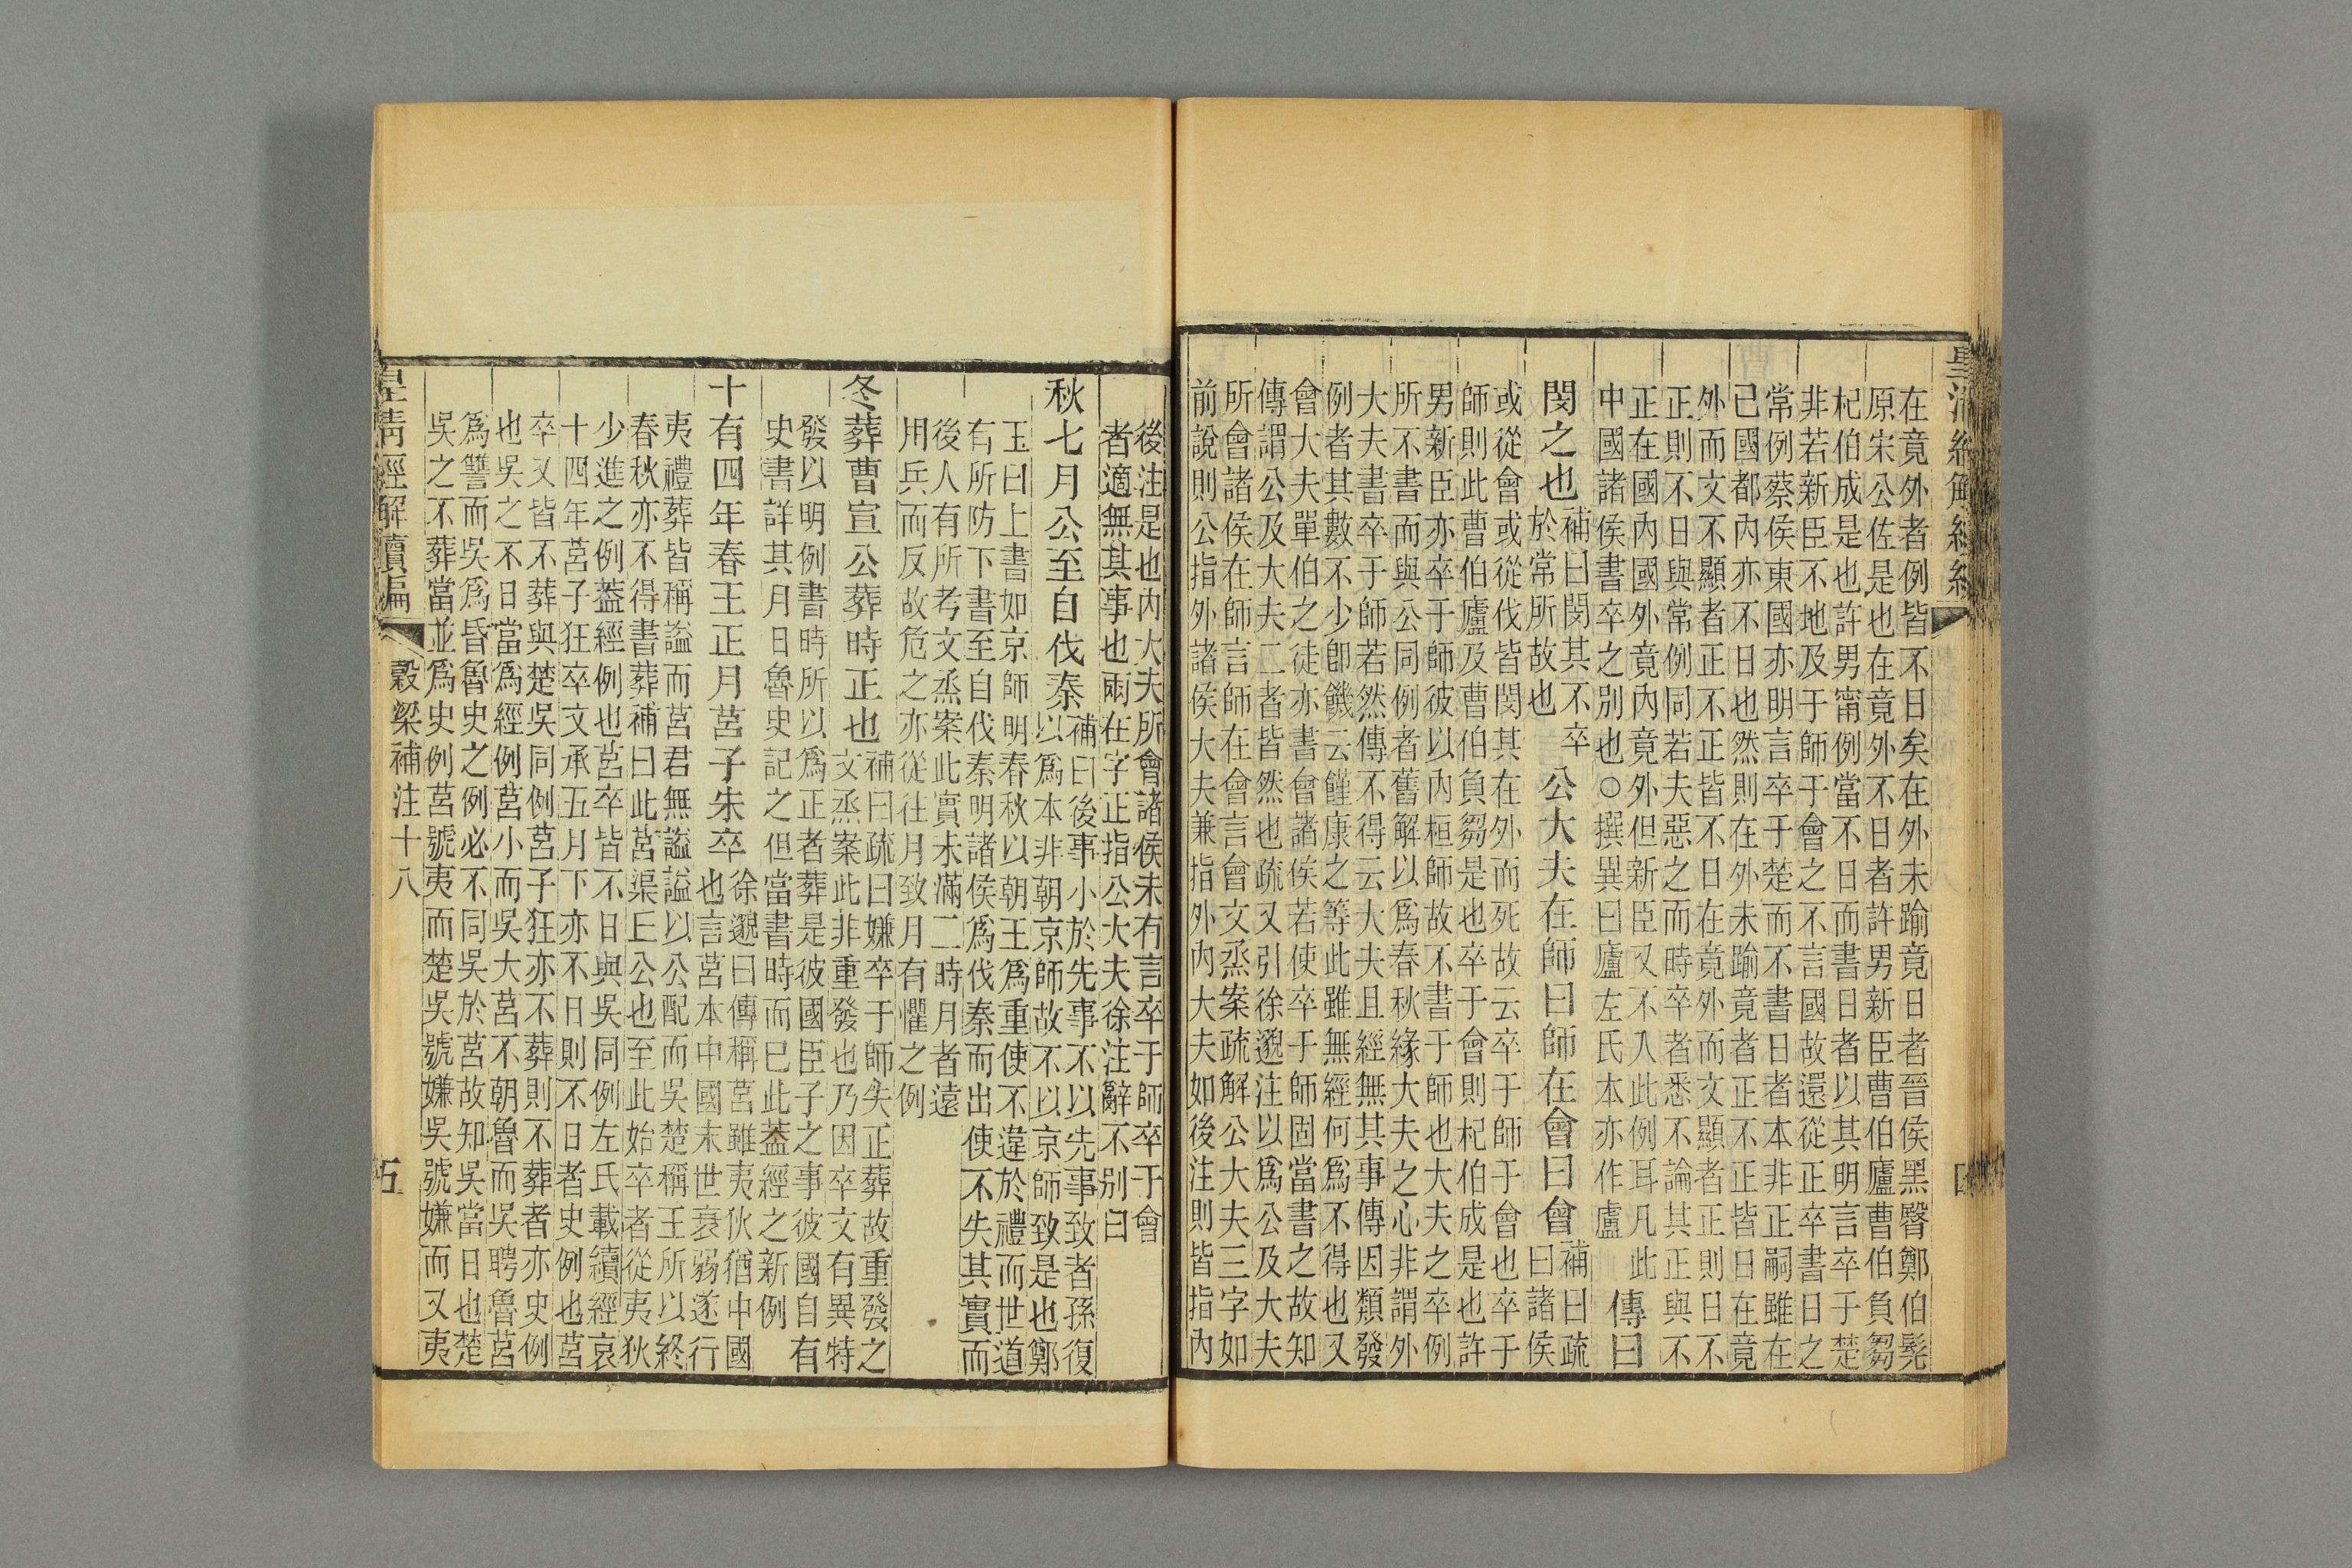 在竟外者例皆不日矣在外未踰竟日者晉侯黑臀鄭伯髡
原宋公佐是也在竟外不日者許男新臣曹伯廬曹伯負芻
杞伯成是也許男甯例當不日而書日者以其明言卒于楚
非若新臣不地及于師于會之不言國故還從正卒書日之
常例蔡侯東國亦明言卒于楚而不書日者本非正嗣雖在
己國都內亦不日也然則在外未踰竟者正不正皆日在竟
外而文不顯者正不正皆不日在竟外而文顯者正則日不
正則不日與常例同若夫惡之而時卒者悉不論其正與不
正在國內國外竟內竟外但新臣又不入此例耳凡此
中國諸侯書卒之別也○撰異曰廬左氏本亦作盧
傳曰
閔之也
補曰閔其不卒
於常所故也
公大夫在師曰師在會曰會
補曰疏
曰諸侯
或從會或從伐皆閔其在外而死故云卒于師于會也卒于
師則此曹伯廬及曹伯負芻是也卒于會則杞伯成是也許
男新臣亦卒于師彼以內桓師故不書于師也大夫之卒例
所不書而與公同例者舊解以爲春秋緣大夫之心非謂外
大夫書卒于師若然傳不得云大夫且經無其事傳因類發
例者其數不少卽饑云饉康之等此雖無經何爲不得也又
會大夫單伯之徒亦書會諸侯若使卒于師固當書之故知
傳謂公及大夫二者皆然也疏又引徐邈注以爲公及大夫
所會諸侯在師言師在會言會文烝案疏解公大夫三字如
前說則公指外諸侯大夫兼指外內大夫如後注則皆指內
後注是也內大夫所會諸侯未有言卒于師卒于會
者適無其事也兩在字正指公大夫徐注辭不別白
秋七月公至自伐秦
補曰後事小於先事不以先事致者孫復
以爲本非朝京師故不以京師致是也鄭
玉曰上書如京師明春秋以朝王爲重使不違於禮而世道
有所防下書至自伐秦明諸侯爲伐秦而出使不失其實而
後人有所考文烝案此實未滿二時月者遠
用兵而反故危之亦從往月致月有懼之例
冬葬曹宣公葬時正也
補曰疏曰嫌卒于師失正葬故重發之
文烝案此非重發也乃因卒文有異特
發以明例書時所以爲正者葬是彼國臣子之事彼國自有
史書詳其月日魯史記之但當書時而已此葢經之新例
十有四年春王正月莒子朱卒
徐邈曰傳稱莒雖夷狄猶中國
也言莒本中國末世衰弱遂行
夷禮葬皆稱謚而莒君無謚謚以公配而吳楚稱王所以終
春秋亦不得書葬補曰此莒渠丘公也至此始卒者從夷狄
少進之例葢經例也莒卒皆不日與吳同例左氏載續經哀
十四年莒子狂卒文承五月下亦不日則不日者史例也莒
卒又皆不葬與楚吳同例莒子狂亦不葬則不葬者亦史例
也吳之不日當爲經例莒小而吳大莒不朝魯而吳聘魯莒
爲讐而吳爲昏魯史之例必不同吳於莒故知吳當日也楚
吳之不葬當並爲史例莒號夷而楚吳號嫌吳號嫌而又夷
皇清經解續編
穀梁補注十八
五